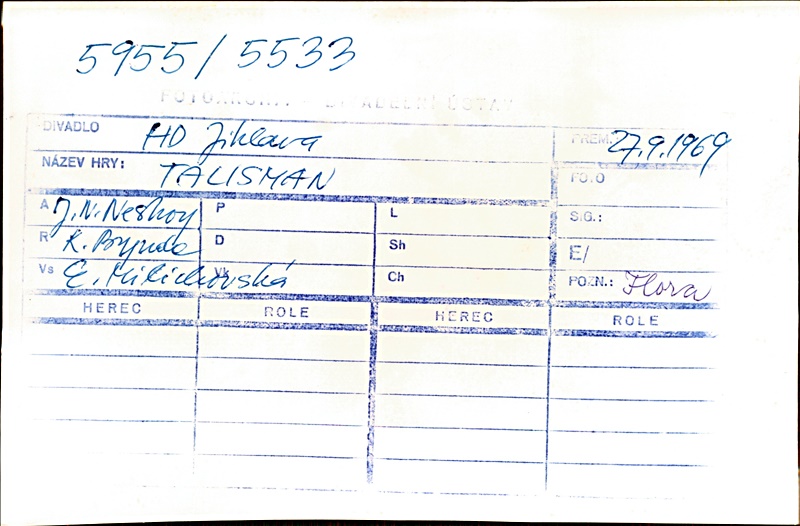 5955/5533
FOTOARCHIV - DIVADELNÍ ÚSTAV
DIVADLO HD Jihlava PREM. 27.9.1969
NÁZEV HRY: TALISMAN FOTO
A J.N. Nestroy P L SIG.:
R K. Brynda D Sh E/
Vs E. Milichovská Vk Ch POZN.: Flora
HEREC ROLE HEREC ROLE